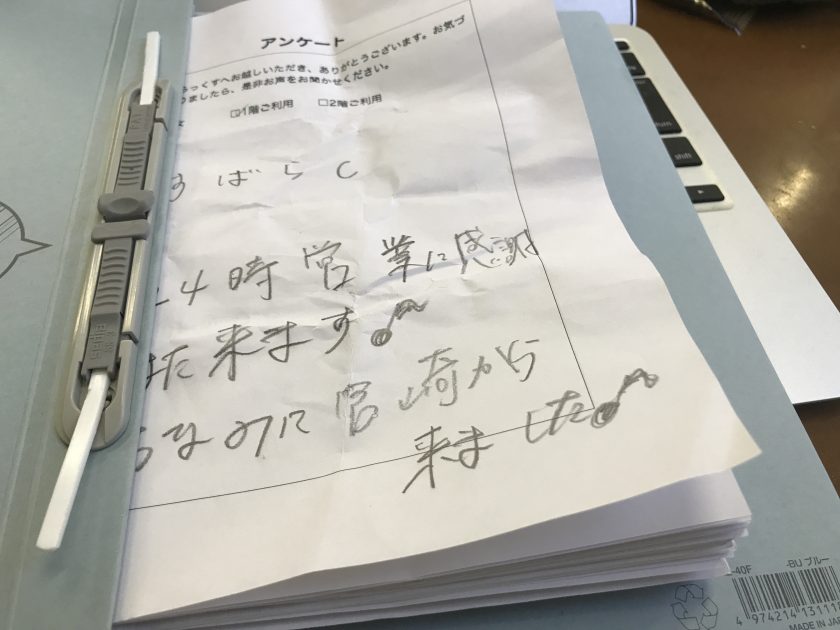 アンケート
っくすへお越しいただき、ありがとうございます。お気づ
りましたら、是非お声をお聞かせください。
☑1階ご利用 □2階ご利用
すばらC
24時営業に感謝
また来ます♪
ちなみに宮崎から
来ました♪
shift
PLUS
-40F
-BU ブルー
4 974214 13111
MADE IN JA